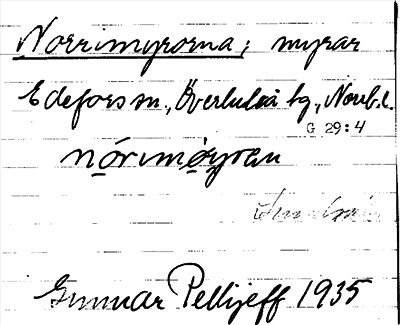 Norrimyrorna; myrar
Edefors sn., Överluleå tg., Norrb. l.
G 29:4
nórimø̱yran
Gunnar Pellijeff 1935